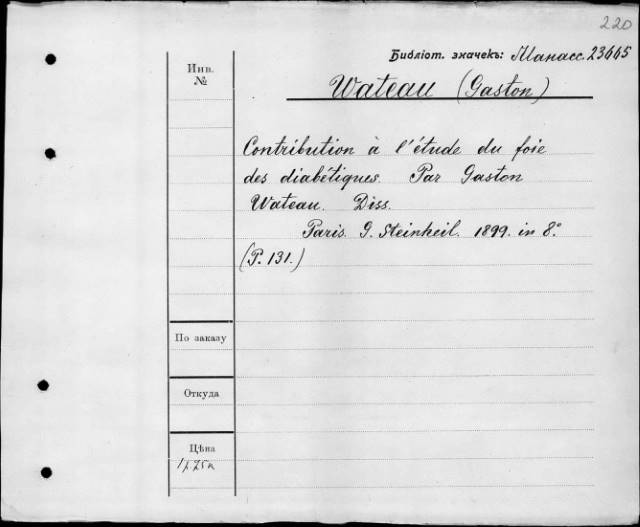 220
Библіот. значекъ: Манасс. 23665
Инв.
№
Wateau (Gaston)
Contribution à l'étude du foie
des diabétiques. Par Gaston
Wateau. Diss.
Paris. G. Steinheil. 1899. in 8°
(P. 131.)
По заказу
Откуда
Цѣна